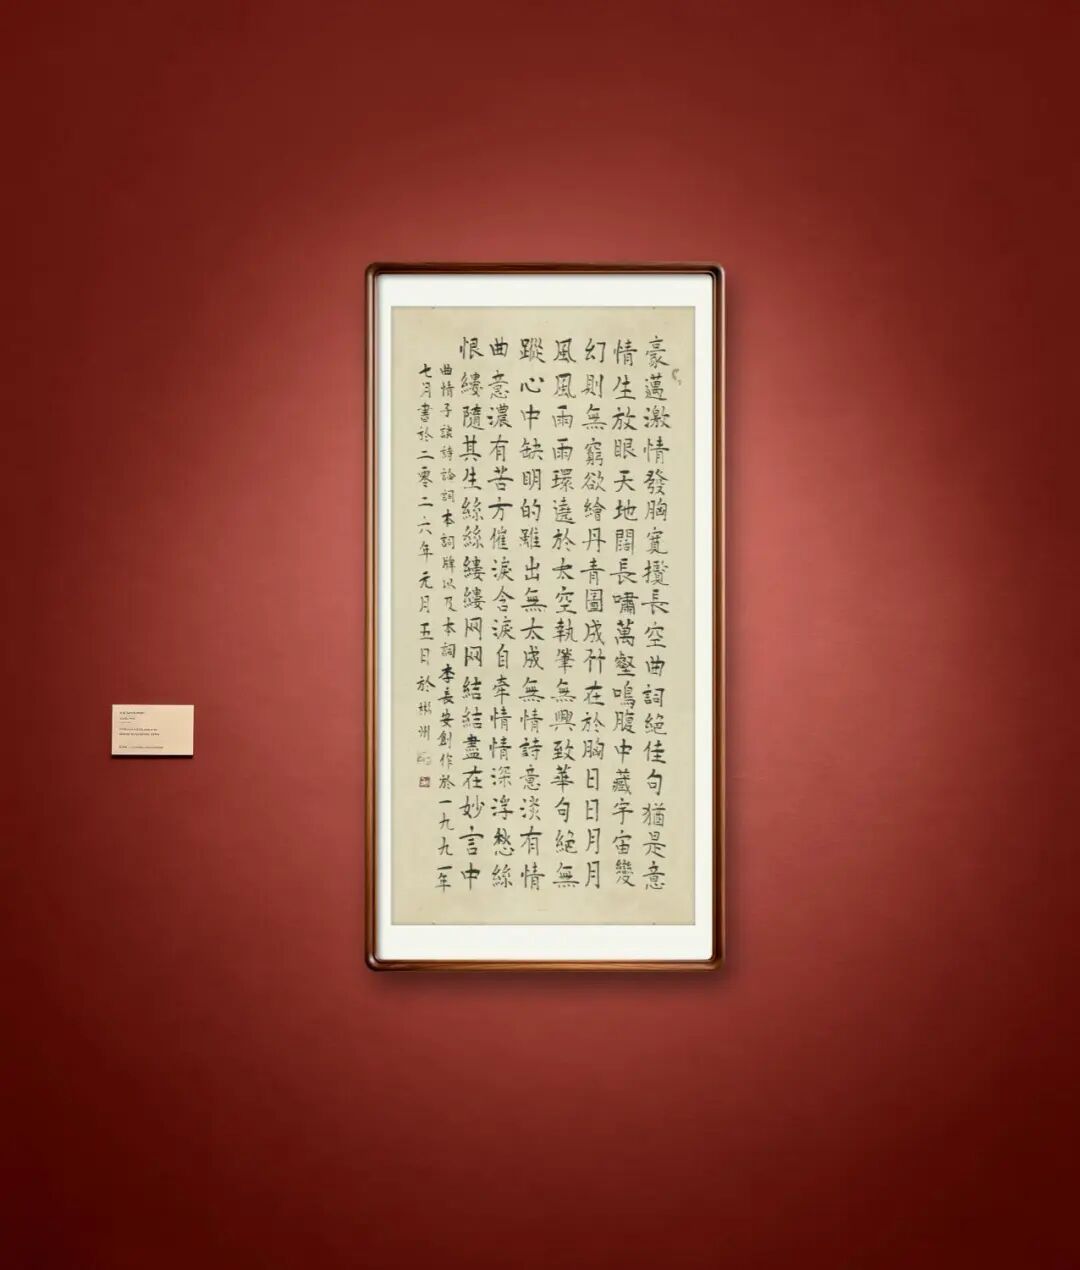 豪邁激情發胸寬攬長空曲詞絕佳句猶是意
情生放眼天地闊長嘯萬壑鳴腹中藏宇宙變
幻則無窮欲繪丹青圖成竹在於胸日日月月
風風雨雨環遶於太空執筆無興致華句絕無
蹤心中缺明的雖出無太成無情詩意淡有情
曲意濃有苦方催淚含淚自牽情情深浮愁絲
恨縷隨其生絲絲縷縷网网結結盡在妙言中
曲情子談詩論詞本詞牌以及本詞李長安創作於一九九一年
七月書於二零二六年元月五日於彬州